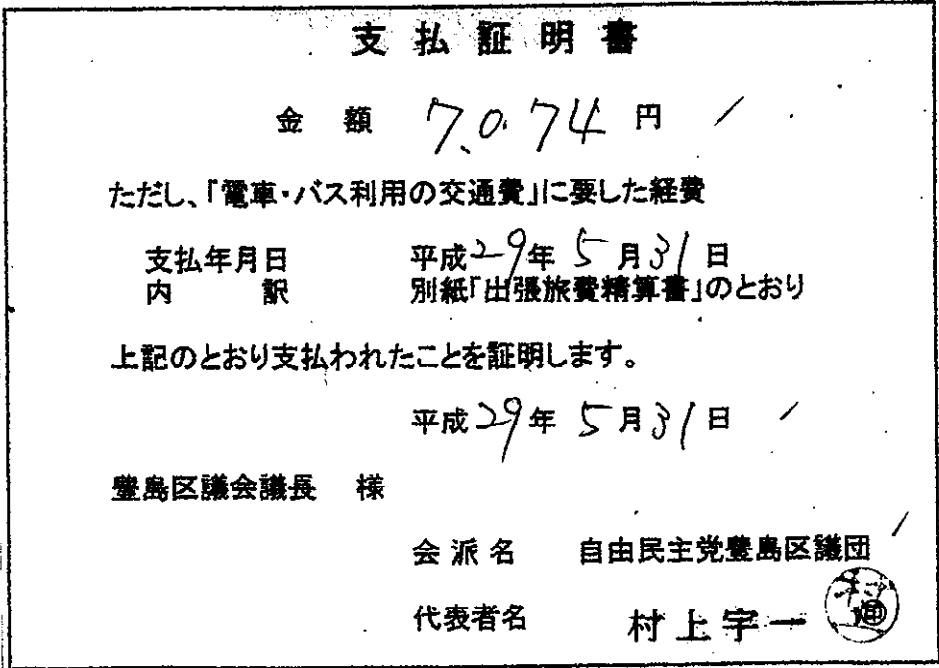 支払証明書
金額 7,074 円
ただし、「電車・バス利用の交通費」に要した経費
支払年月日 平成29年5月31日
内訳 別紙「出張旅費精算書」のとおり
上記のとおり支払われたことを証明します。
平成29年5月31日
豊島区議会議長 様
会派名 自由民主党豊島区議団
代表者名 村上宇一